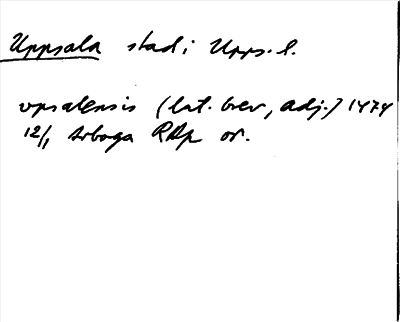 Uppsala stad i Upps. l.
vpsalensis (lat. brev, adj.) 1474
12/1 Arboga RAp or.